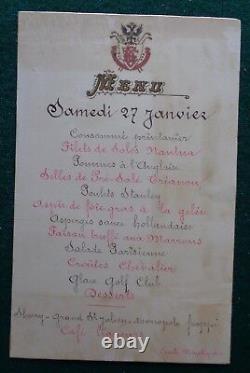 Menu
Samedi 27 Janvier
Consommé printanier
Filets de Soles Nantua
Pommes à l'Anglaise
Selles de Pré-Salé Trianon
Poulets Stanley
Aspic de foie gras à la gelée
Asperges sauce hollandaise
Faisan truffé aux Marrons
Salade Parisienne
Croûtes Chevalier
Glace Golf Club
Desserts
Sherry - Grand St Julien - monopole frappé
Café Liqueurs